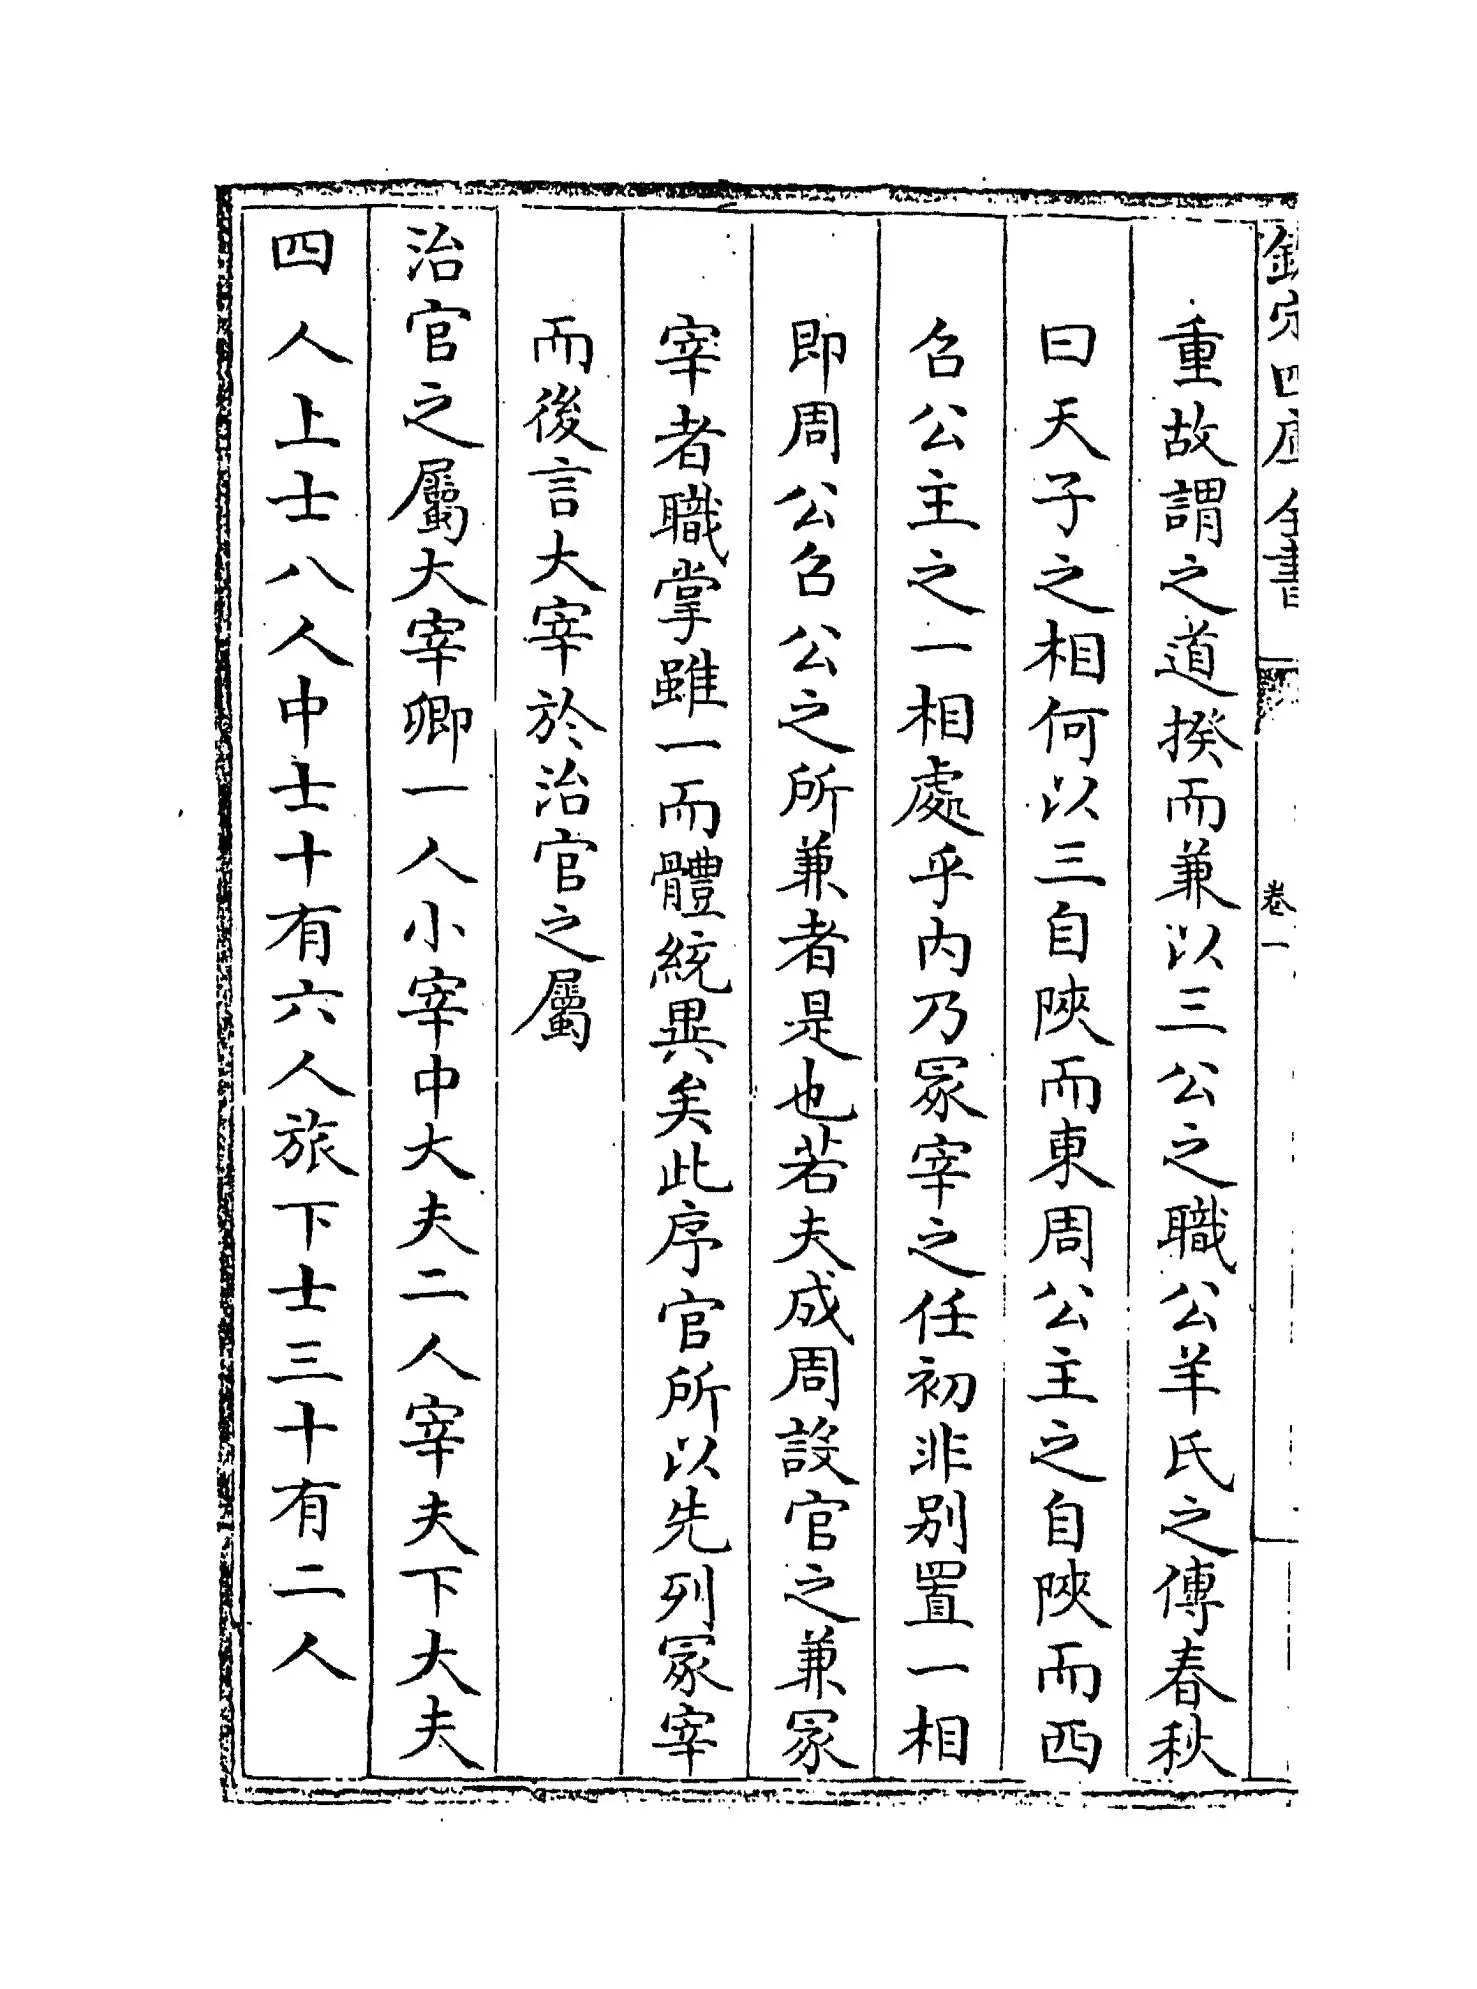 欽定四庫全書
卷一
重故謂之道揆而兼以三公之職公羊氏之傳春秋
曰天子之相何以三自陜而東周公主之自陜而西
召公主之一相處乎内乃冢宰之任初非别置一相
即周公召公之所兼者是也若夫成周設官之兼冢
宰者職掌雖一而體統異矣此序官所以先列冢宰
而後言大宰於治官之屬
治官之屬大宰卿一人小宰中大夫二人宰夫下大夫
四人上士八人中士十有六人旅下士三十有二人